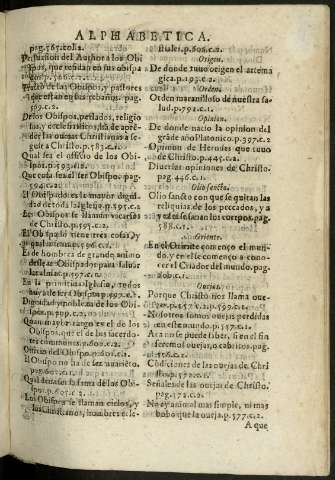 ALPHABETICA.
pag.567.col.2.
Persuasion del Author a los Obi
spos, que residan en sus obispa
dos.
de los Obispos, y pastores
que estan en sus rebaños. pag.
De los Obispos, perlados, religio
sos, y ecclesiasticos, ha de apren
der las ouejas Christianas a se-
guir a Christo.p.583.c.1.
Qual sea el officio de los Obi-
spos.
Que cosa sea ser Obispo. pag.
594.c.2.
El Obispado es la mayor digni
dad de toda la Iglesia.p.595.c.1.
Los Obispos se llaman vicarios
de Christo.p.595.c.1.
El Obispado tiene dos cosas, y
quales sean.p.596.c.1.
Es de hombres de grande animo
dessear Obispados para saluar
las almas.p.597.c.2.
En la primitiua Iglesia, todos
huyan de ser Obispos.p.599.c.2.
Dignidad y nobleza de los Obi
spos.
Quan mayor rango es el de los
Obispos, que el de los sacerdo-
tes communes.p.600.c.2.
Officio del Obispo.p.601.c.2.
El Obispo no ha de ser auariento.
p.602.c.2.
Qual deua ser la fama de los Obi
spos.
Los Obispos se llaman cielos, y
los Christianos, hombres ce le-
stiales.p.606.c.2.
Origen.
De donde tuuo origen el arte ma
gica.p.193.c.2.
Orden.
Orden marauilloso de nuestra sa
lud.p.192.c.2.
Opinion.
De donde nacio la opinion del
grãde año Platonico.p.397.c.2
Opinion de Herodes que tuuo
de Christo.p.445.c.1.
Diuersas opiniones de Christo.
pag.446.c.1.
Olio sancto.
Olio sancto con que se quitan las
reliquias de los peccados, y a
vezes se sanan los cuerpos.pag.
588.c.1.
Oriente.
En el Oriente començo el mun-
do, y en el se començo a cono-
cer el Criador del mundo.pag.
206.c.1.
Ouejas.
Porque Christo nos llama oue-
jas.p.457.c.2.p.599.c.2.
Nosotros somos ouejas perdidas
en este mundo.p.557.c.1.
Aca no se puede saber, si en fin
seremos ouejas, o cabritos.pag.
Cõdiciones de las ouejas de Chri
sto.p.557.c.2.
Señales de las ouejas de Christo.
pag.572.c.2.
No ay animal mas simple, ni mas
bobo que la oueja.p.577.c.2.
A que